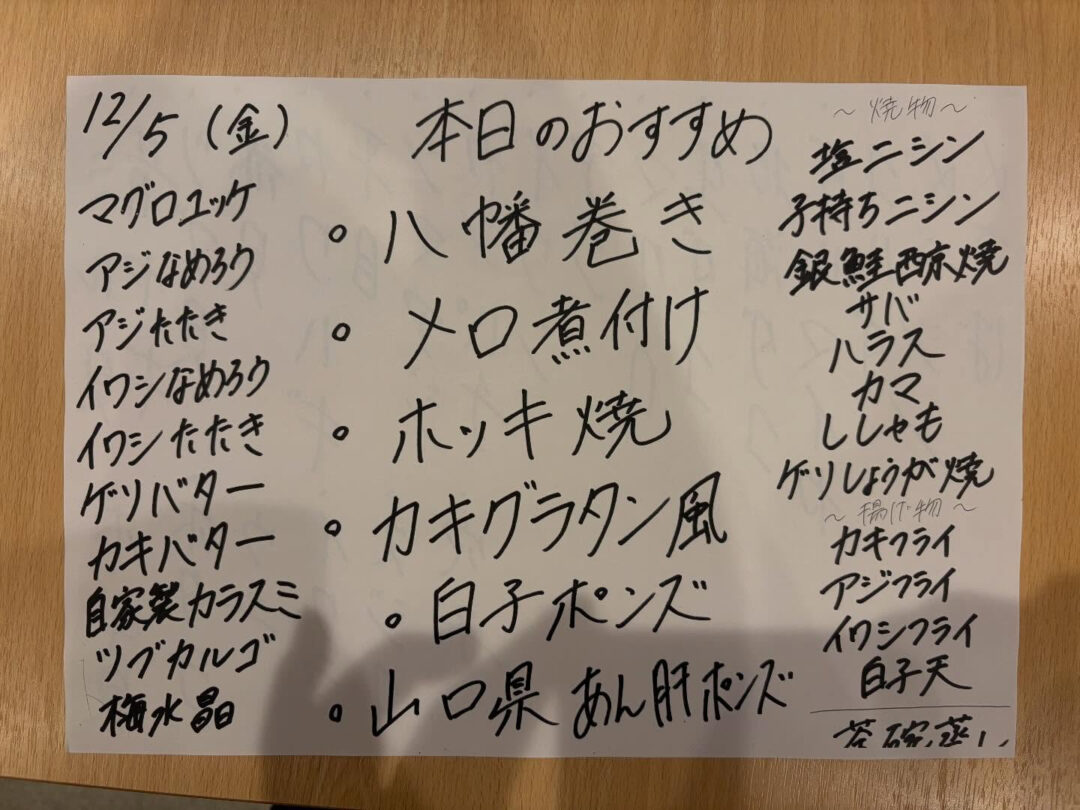 12/5(金)
マグロユッケ
アジなめろう
アジたたき
イワシなめろう
イワシたたき
ゲソバター
カキバター
自家製カラスミ
ツブカルゴ
梅水晶
本日のおすすめ
。八幡巻き
。メロ煮付け
。ホッキ焼
。カキグラタン風
。白子ポンズ
。山口県 あん肝ポンズ
~焼物~
塩ニシン
子持ちニシン
銀鮭西京焼
サバ
ハラス
カマ
ししゃも
ゲソしょうが焼
~揚げ物~
カキフライ
アジフライ
イワシフライ
白子天
茶碗蒸し